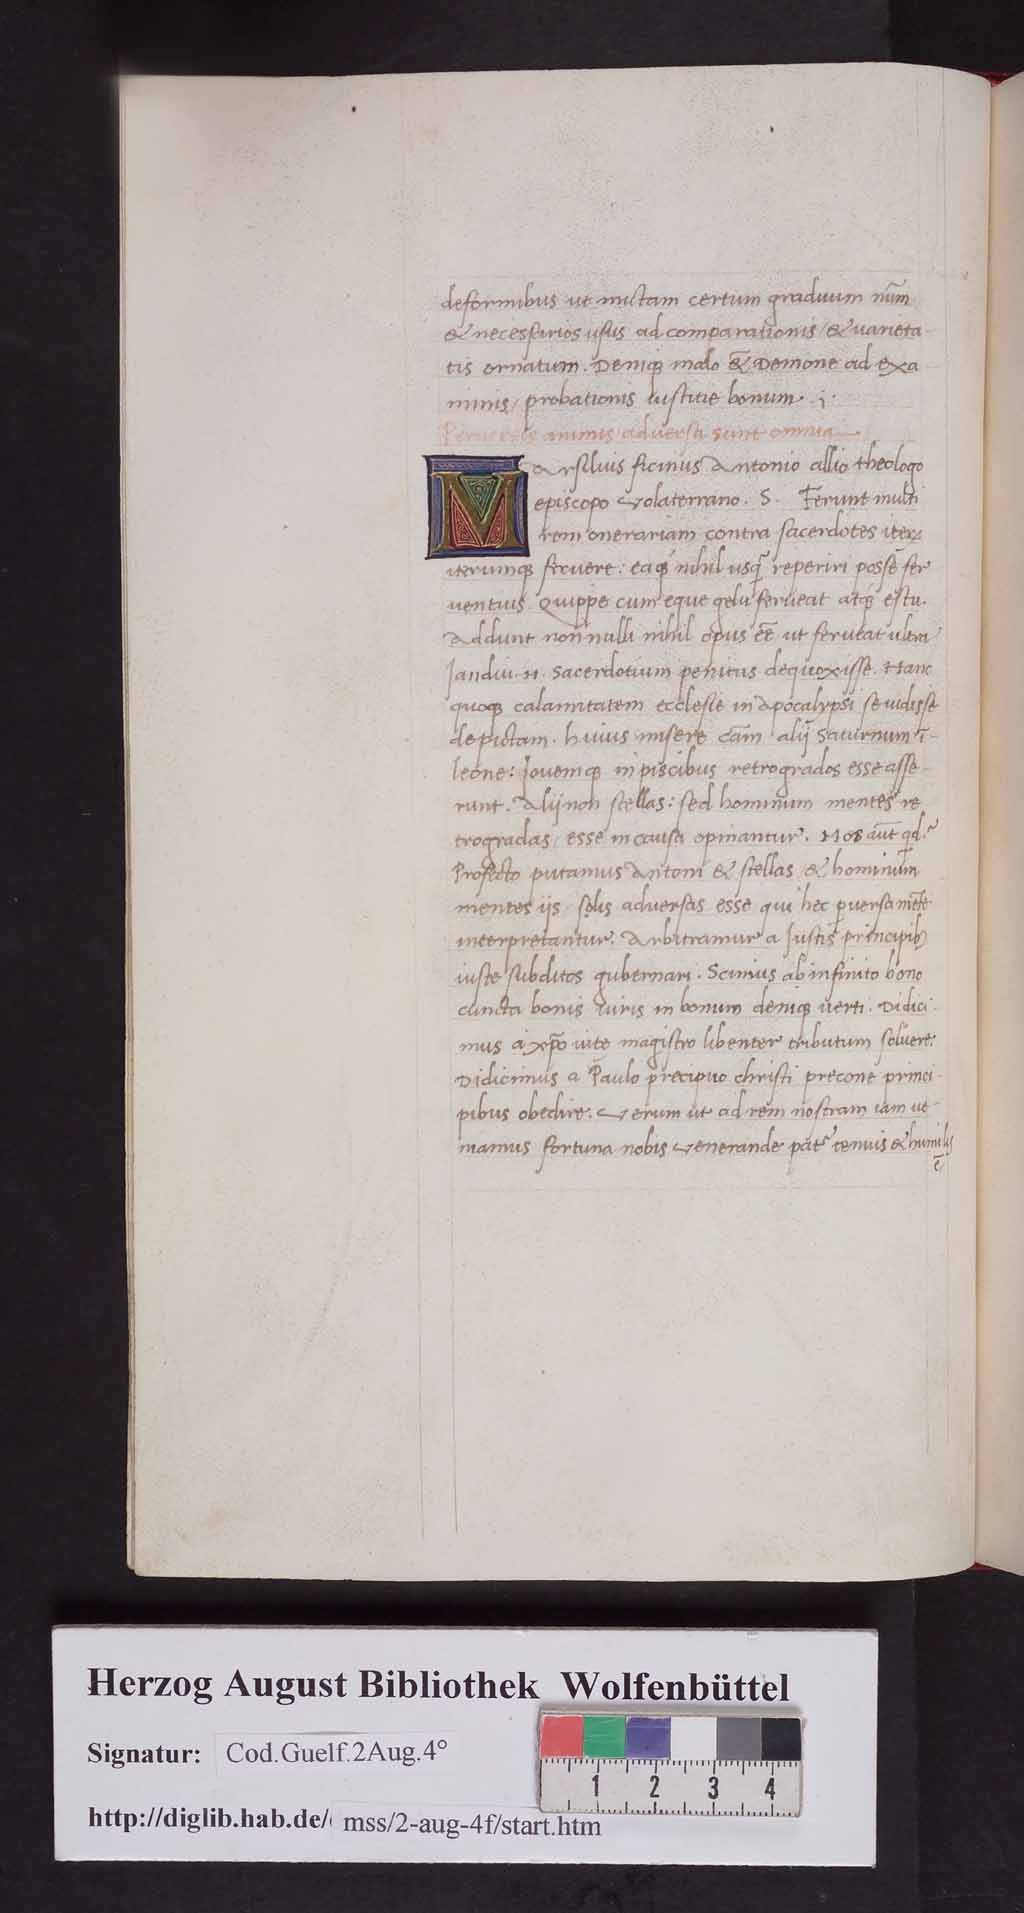 deformibus ut mistam certum graduum nūm
& necessarios usus ad comparationis / & varieta-
tis ornatum. Deniq; malo & Demone ad exa-
minis / probationis iustitie bonum .
Perversis animis adversa sunt omnia
Marsilius ficinus Antonio allio theologo
episcopo Volaterrano. S. Ferunt multi
rem onerariam contra sacerdotes iter
iterumq; fervere: eaq; nihil usq̄ reperiri posse fer
ventius. Quippe cum eque gelu ferveat atq; estu.
Addunt nonnulli nihil opus eē ut ferveat ultra
Iandiu .n. Sacerdotium penitus dequoxisse. Hanc
quoq; calamitatem ecclesie in Apocalypsi se vidisse
depictam. huius misere cām alij Saturnum ī-
leone: Iovemq; in piscibus retrogrados esse asse-
runt. Alij non stellas: sed hominum mentes re
trogradas / esse in causa opinantur. Nos aūt qd.
Profecto putamus Antoni & stellas / & hominum
mentes ijs / solis adversas esse qui hec pversa mēte
interpretantur. Arbitramur a Iustis principib;
iuste subditos gubernari. Scimus ab infinito bono
cuncta bonis viris in bonum deniq; verti. Didici-
mus a xpo vite magistro libenter tributum solvere:
Didicimus a Paulo precipuo christi precone princi-
pibus obedire. Verum ut ad rem nostram iam ve-
niamus fortuna nobis Venerande pat̄ tenuis & humilis
ē
Herzog August Bibliothek Wolfenbüttel
Signatur: Cod.Guelf.2Aug.4°
1 2 3 4
http://diglib.hab.de/ mss/2-aug-4f/start.htm